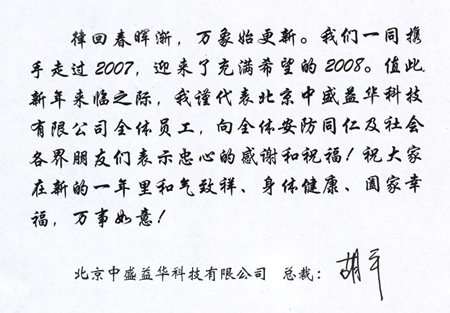 律回春晖渐，万象始更新。我们一同携
手走过2007，迎来了充满希望的2008。值此
新年来临之际，我谨代表北京中盛益华科技
有限公司全体员工，向全体安防同仁及社会
各界朋友们表示忠心的感谢和祝福！祝大家
在新的一年里和气致祥、身体健康、阖家幸
福，万事如意！
北京中盛益华科技有限公司 总裁：胡平